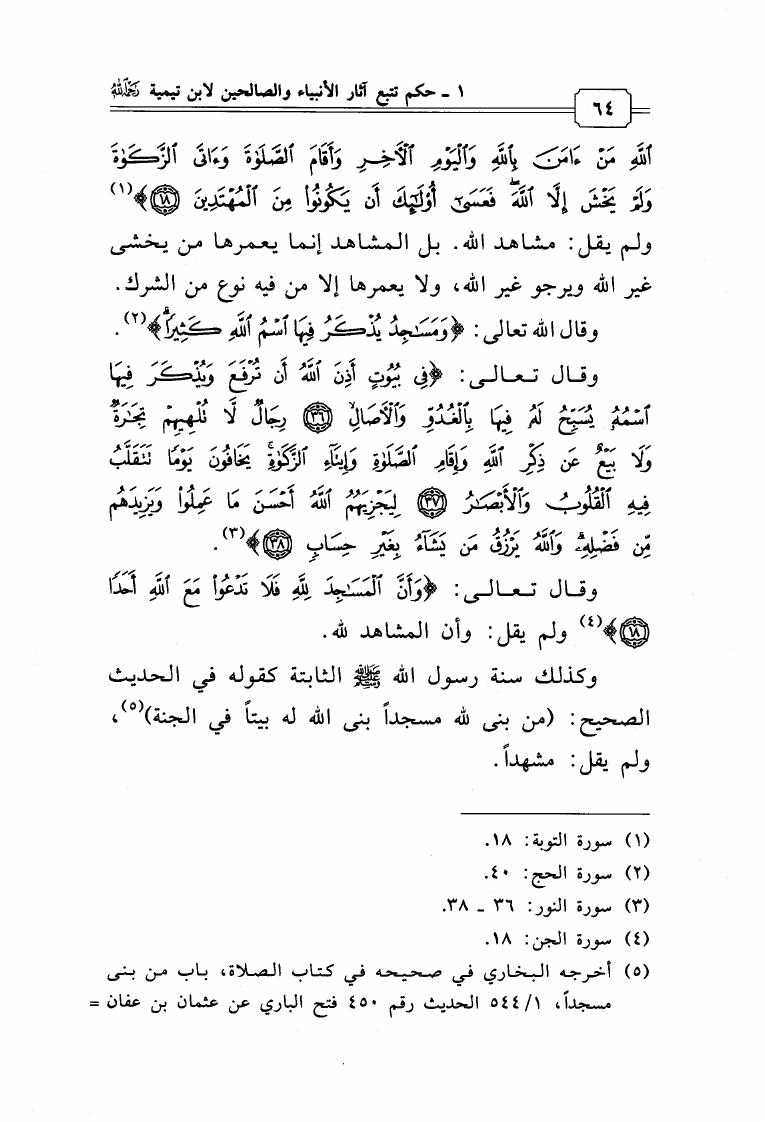 ٦٤
١ - حكم تتبع آثار الأنبياء والصالحين لابن تيمية رَحِمَهُ اللَّهُ
ٱللَّهِ مَنۡ ءَامَنَ بِٱللَّهِ وَٱلۡيَوۡمِ ٱلۡأٓخِرِ وَأَقَامَ ٱلصَّلَوٰةَ وَءَاتَى ٱلزَّكَوٰةَ
وَلَمۡ يَخۡشَ إِلَّا ٱللَّهَۖ فَعَسَىٰٓ أُوْلَٰٓئِكَ أَن يَكُونُواْ مِنَ ٱلۡمُهۡتَدِينَ ١٨﴾(١)
ولم يقل: مشاهد الله. بل المشاهد إنما يعمرها من يخشى
غير الله ويرجو غير الله، ولا يعمرها إلا من فيه نوع من الشرك.
وقال الله تعالى: ﴿وَمَسَٰجِدُ يُذۡكَرُ فِيهَا ٱسۡمُ ٱللَّهِ كَثِيرٗاۗ﴾(٢).
وقال تعالى: ﴿فِي بُيُوتٍ أَذِنَ ٱللَّهُ أَن تُرۡفَعَ وَيُذۡكَرَ فِيهَا
ٱسۡمُهُۥ يُسَبِّحُ لَهُۥ فِيهَا بِٱلۡغُدُوِّ وَٱلۡأٓصَالِ ٣٦ رِجَالٞ لَّا تُلۡهِيهِمۡ تِجَٰرَةٞ
وَلَا بَيۡعٌ عَن ذِكۡرِ ٱللَّهِ وَإِقَامِ ٱلصَّلَوٰةِ وَإِيتَآءِ ٱلزَّكَوٰةِ يَخَافُونَ يَوۡمٗا تَتَقَلَّبُ
فِيهِ ٱلۡقُلُوبُ وَٱلۡأَبۡصَٰرُ ٣٧ لِيَجۡزِيَهُمُ ٱللَّهُ أَحۡسَنَ مَا عَمِلُواْ وَيَزِيدَهُم
مِّن فَضۡلِهِۦۗ وَٱللَّهُ يَرۡزُقُ مَن يَشَآءُ بِغَيۡرِ حِسَابٖ ٣٨﴾(٣).
وقال تعالى: ﴿وَأَنَّ ٱلۡمَسَٰجِدَ لِلَّهِ فَلَا تَدۡعُواْ مَعَ ٱللَّهِ أَحَدٗا
١٨﴾(٤) ولم يقل: وأن المشاهد لله.
وكذلك سنة رسول الله ﷺ الثابتة كقوله في الحديث
الصحيح: (من بنى لله مسجداً بنى الله له بيتاً في الجنة)(٥)،
ولم يقل: مشهداً.
(١) سورة التوبة: ١٨.
(٢) سورة الحج: ٤٠.
(٣) سورة النور: ٣٦ - ٣٨.
(٤) سورة الجن: ١٨.
(٥) أخرجه البخاري في صحيحه في كتاب الصلاة، باب من بنى
مسجداً، ٥٤٤/١ الحديث رقم ٤٥٠ فتح الباري عن عثمان بن عفان =